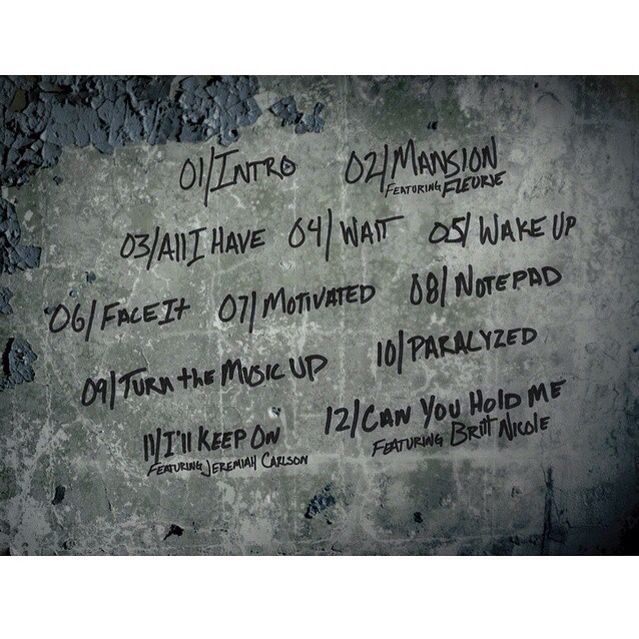 01/INTRO 02/MANSION
FEATURING FLEURIE
03/All I HAVE 04/WAIT 05/WAKE UP
06/FACE It 07/MOTIVATED 08/NOTEPAD
09/TURn tHE MUSIC UP 10/PARALYZED
11/I'll KEEP ON 12/CAN YOU HOlD ME
FEATURING JEREMIAH CARLSON FEATURING BRitt NicolE